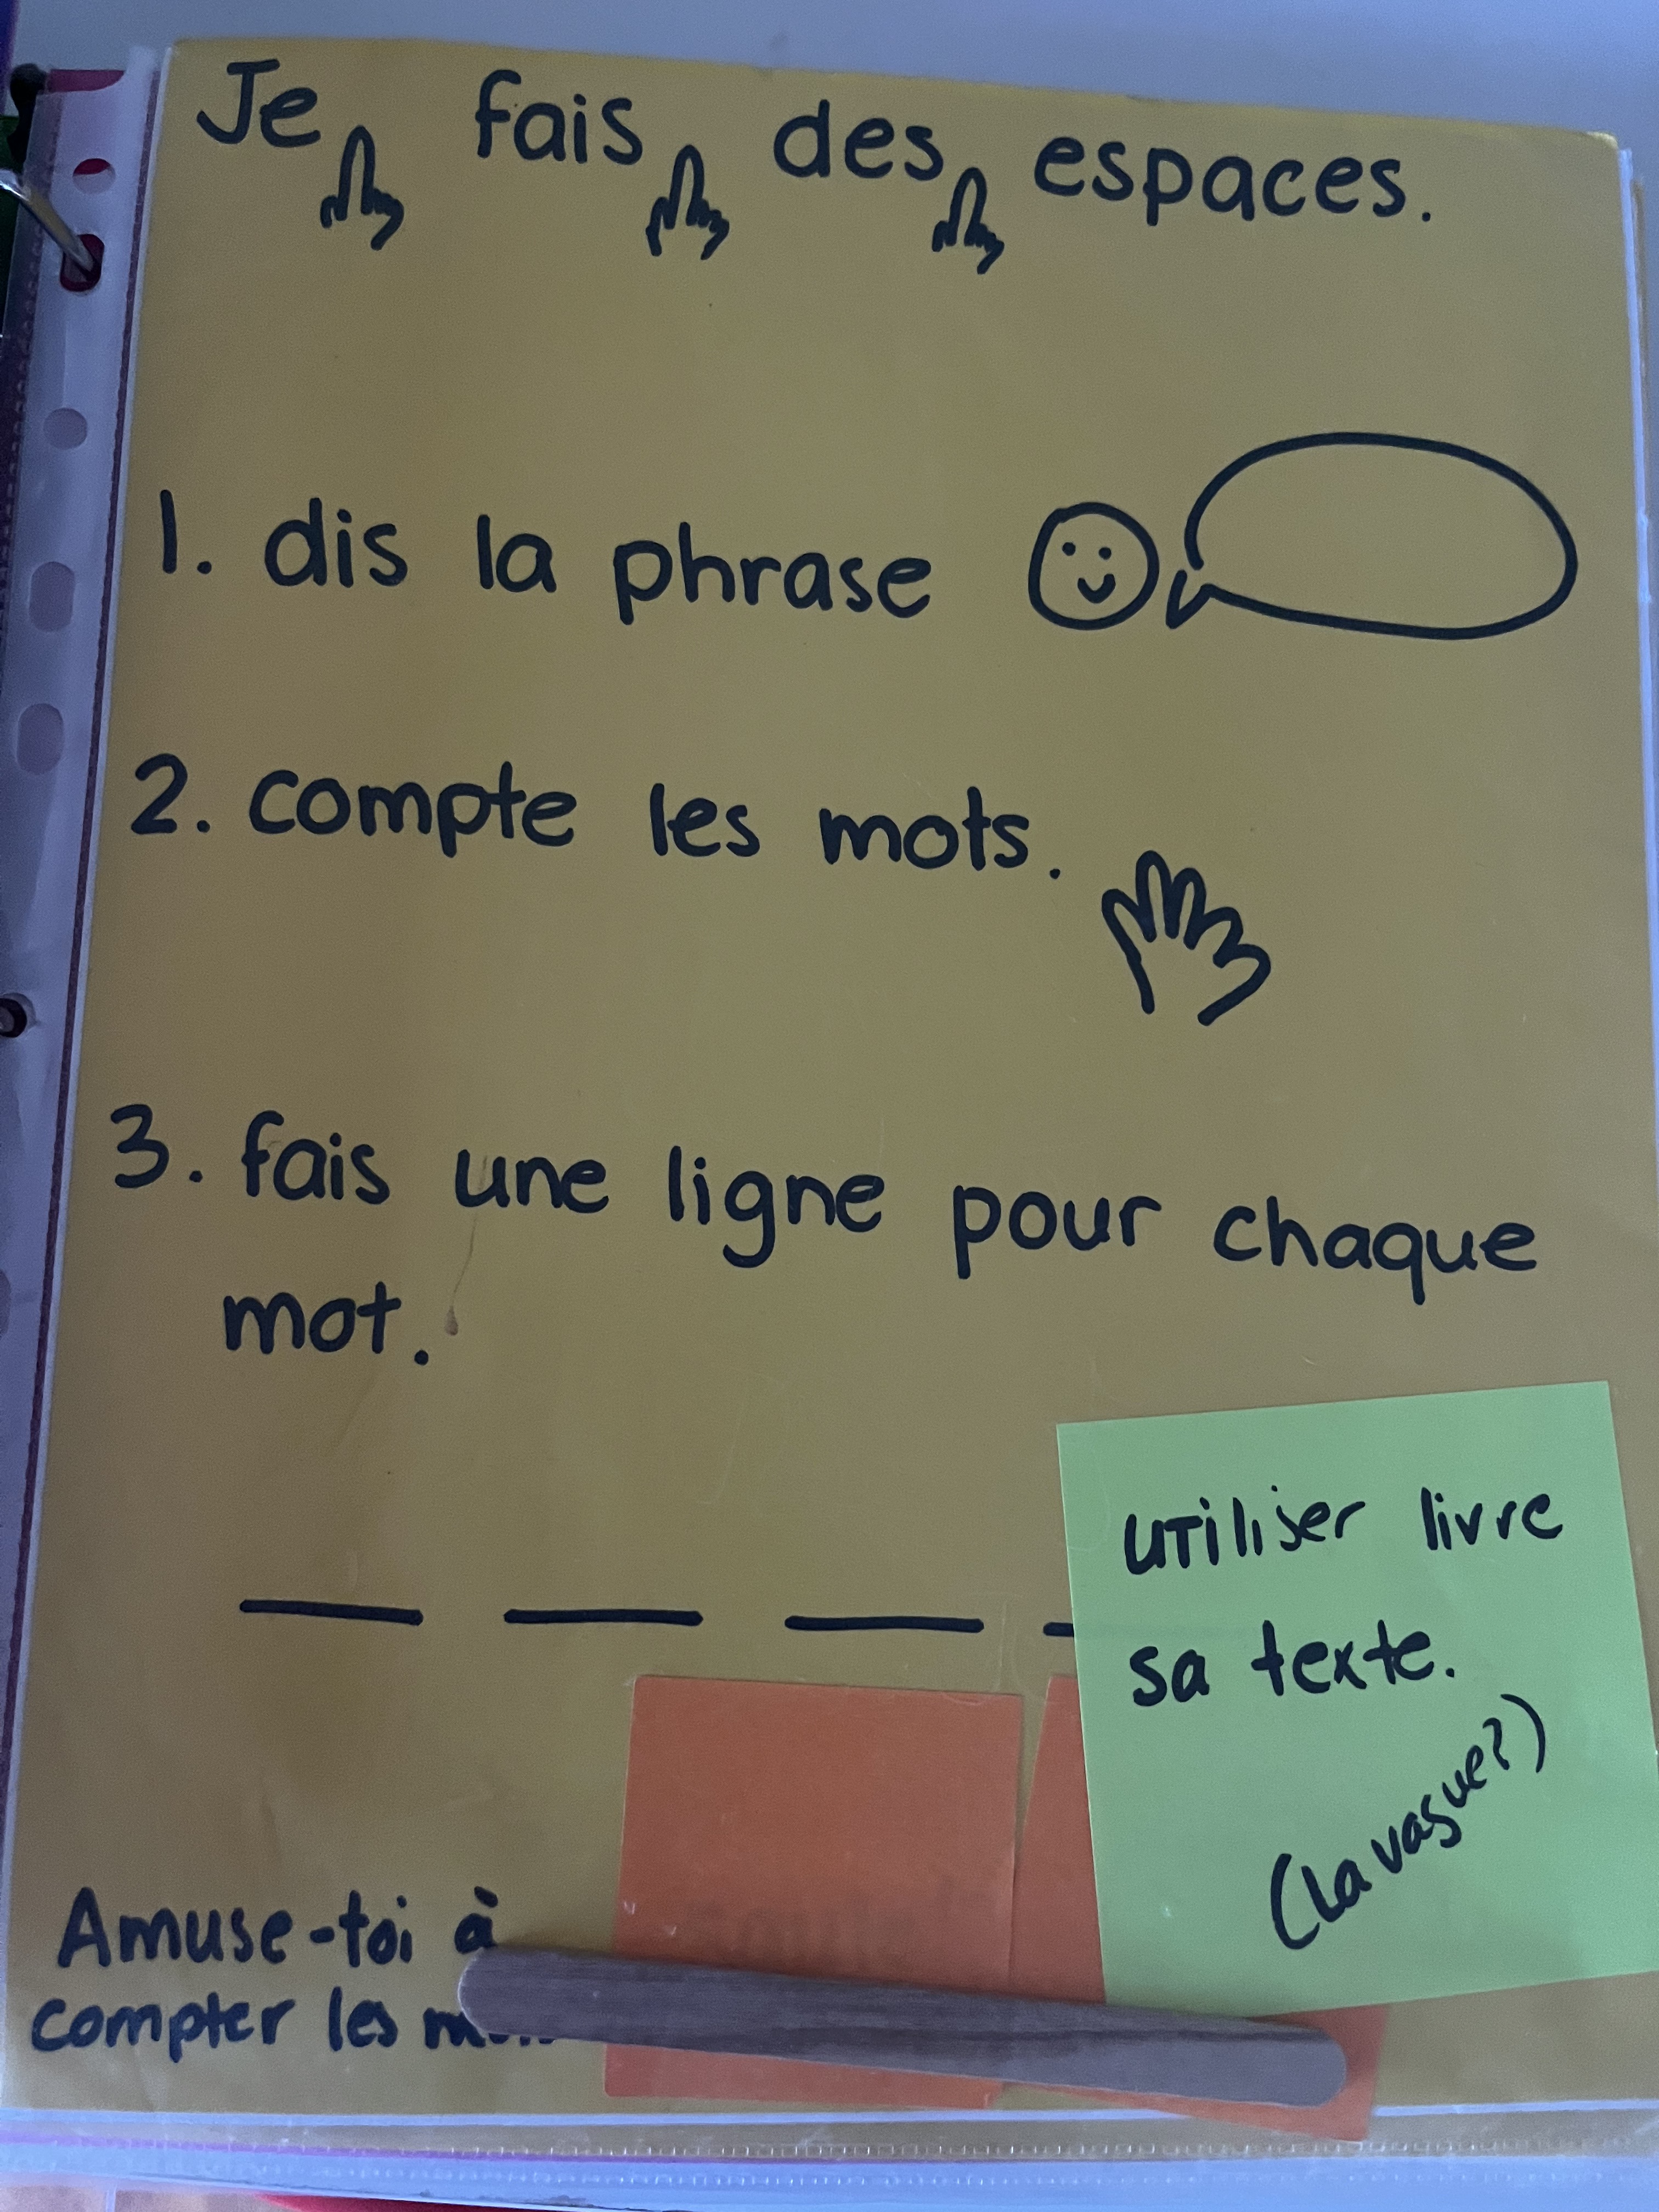 Je fais des espaces.
1. dis la phrase
2. compte les mots.
3. fais une ligne pour chaque
mot.
utiliser livre
sa texte.
(La vague?)
Amuse-toi à
compter les